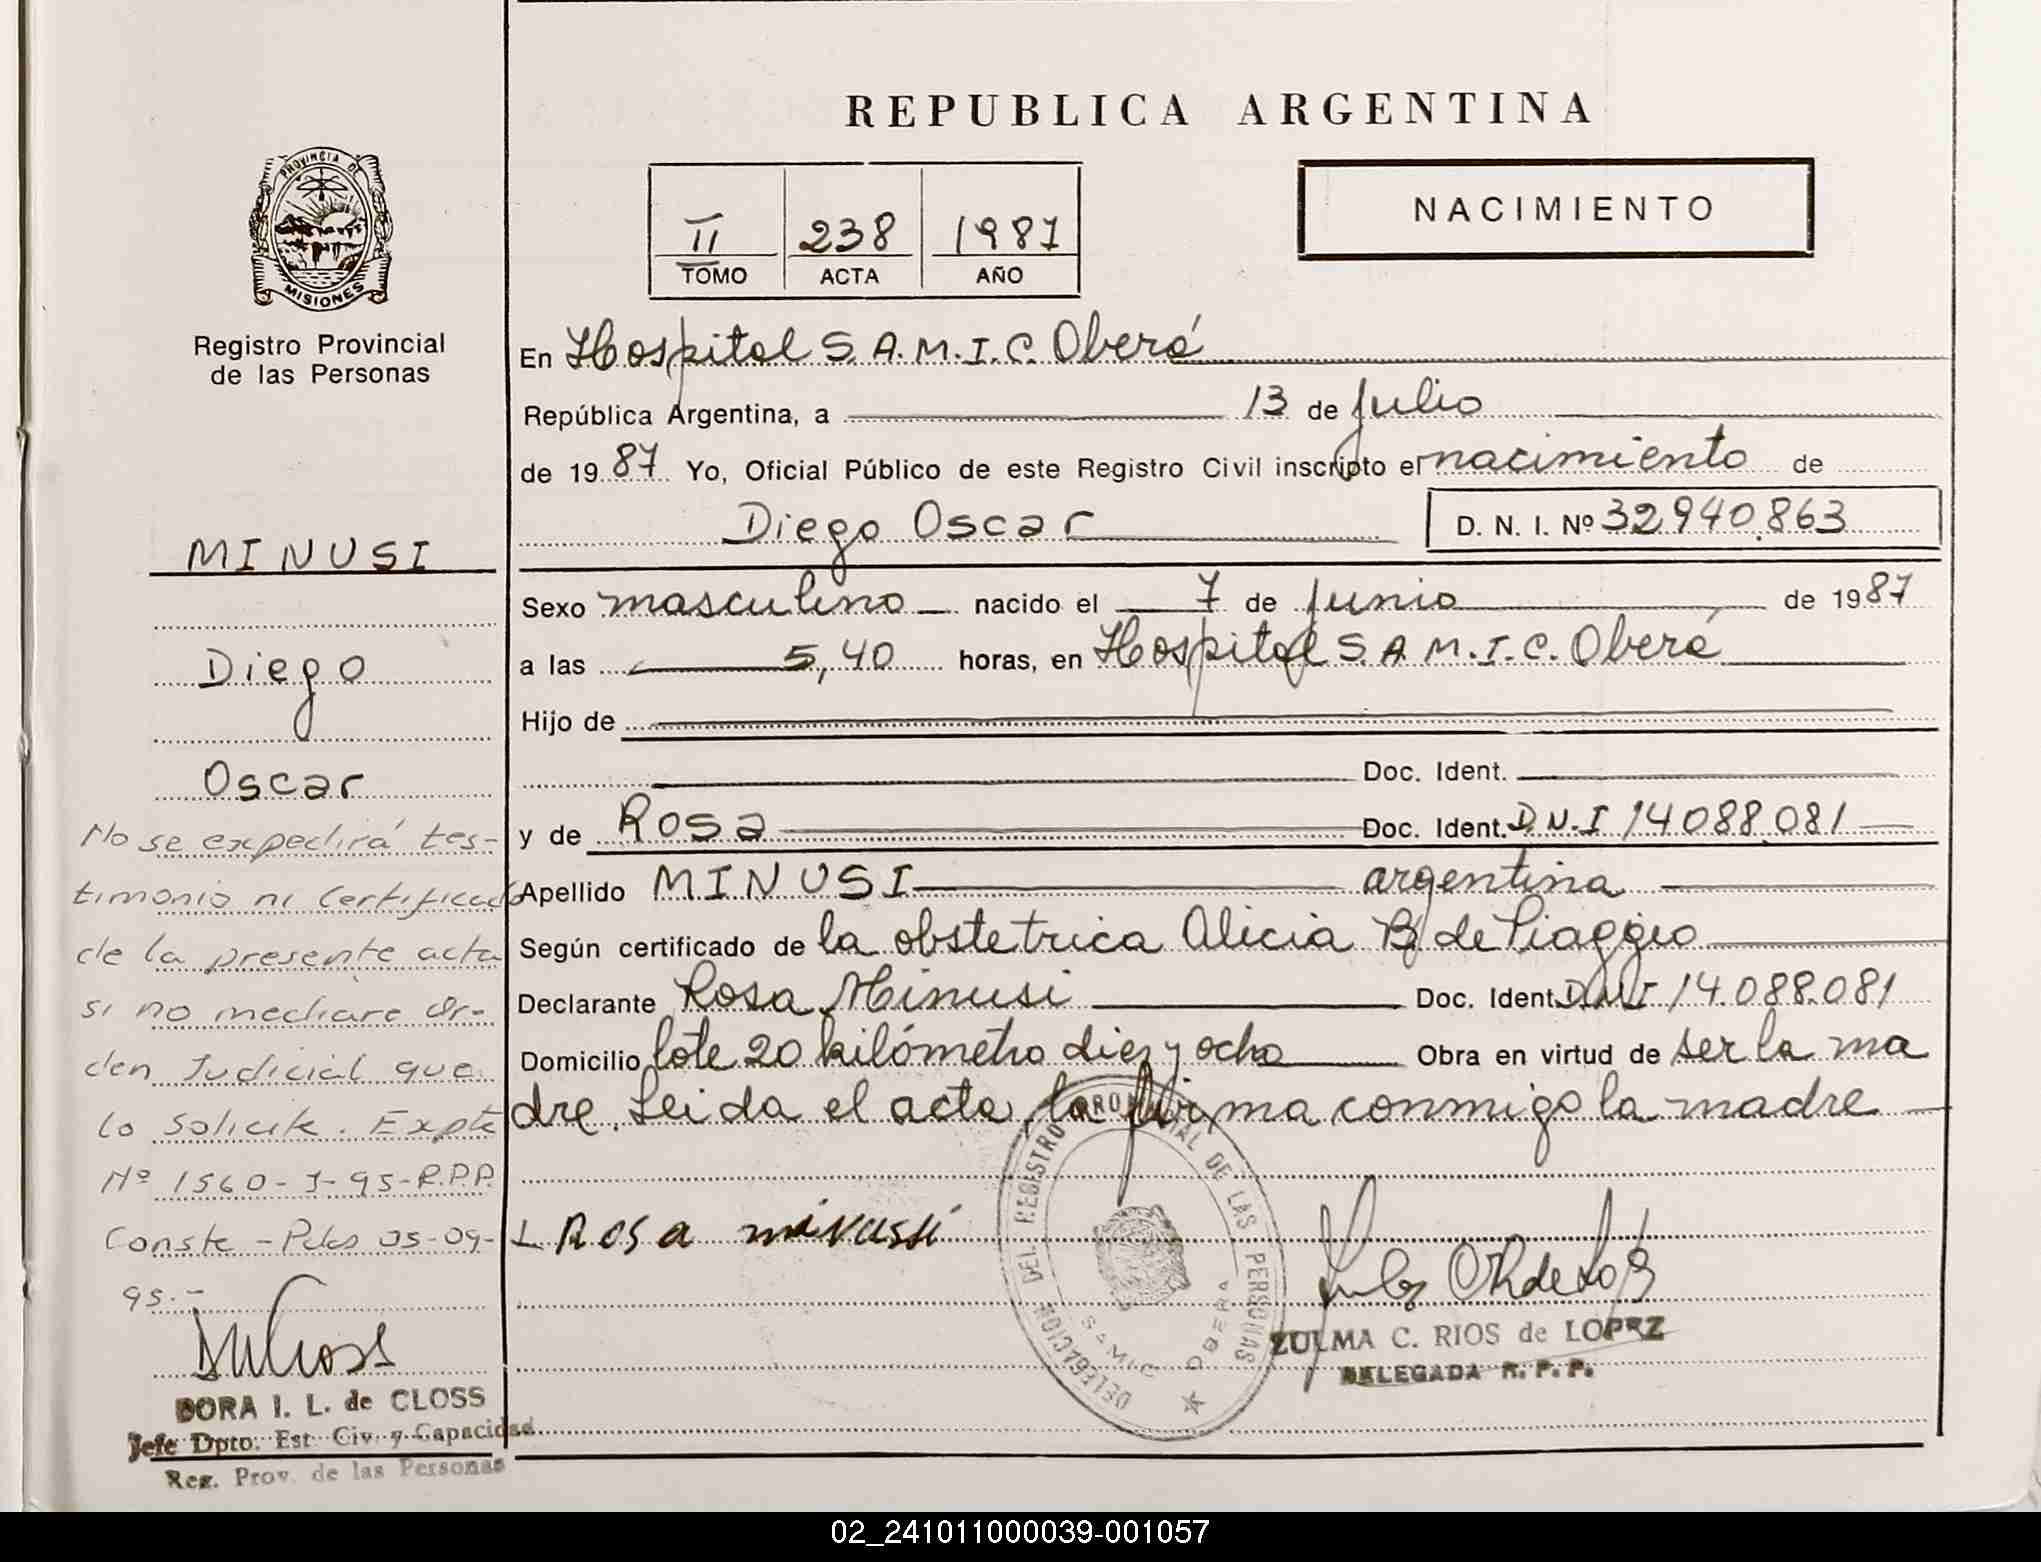 REPUBLICA ARGENTINA
PROVINCIA DE
MISIONES
Registro Provincial
de las Personas
II 238 1987
TOMO ACTA AÑO
NACIMIENTO
En Hospital S.A.M.I.C. Oberá
República Argentina, a 13 de Julio
de 1987 Yo, Oficial Público de este Registro Civil inscripto el nacimiento de
Diego Oscar D. N. I. Nº 32.940.863
Sexo masculino nacido el 7 de Junio de 1987
a las 5,40 horas, en Hospital S.A.M.I.C. Oberá
Hijo de
Doc. Ident.
y de Rosa Doc. Ident. D.N.I 14.088.081
Apellido MINUSI argentina
Según certificado de la obstetrica Alicia B. de Piaggio
Declarante Rosa Minusi Doc. Ident. DNI 14.088.081
Domicilio lote 20 kilómetro diez y ocho Obra en virtud de ser la ma
dre. Leida el acta, la firma conmigo la madre
MINUSI
Diego
Oscar
No se expedirá tes-
timonio ni Certificado
de la presente acta
si no mediare Or-
den Judicial que
lo solicite. Expte
Nº 1560-J-95-R.P.P.
Conste - Pdas 05-09-
95.-
DORA I. L. de CLOSS
Jefe Dpto. Est. Civ. y Capacidad
Reg. Prov. de las Personas
Rosa minussi
DELEGACION DEL REGISTRO PROVINCIAL DE LAS PERSONAS
SAMIC OBERA
ZULMA C. RIOS de LOPEZ
DELEGADA R. P. P.
02_241011000039-001057